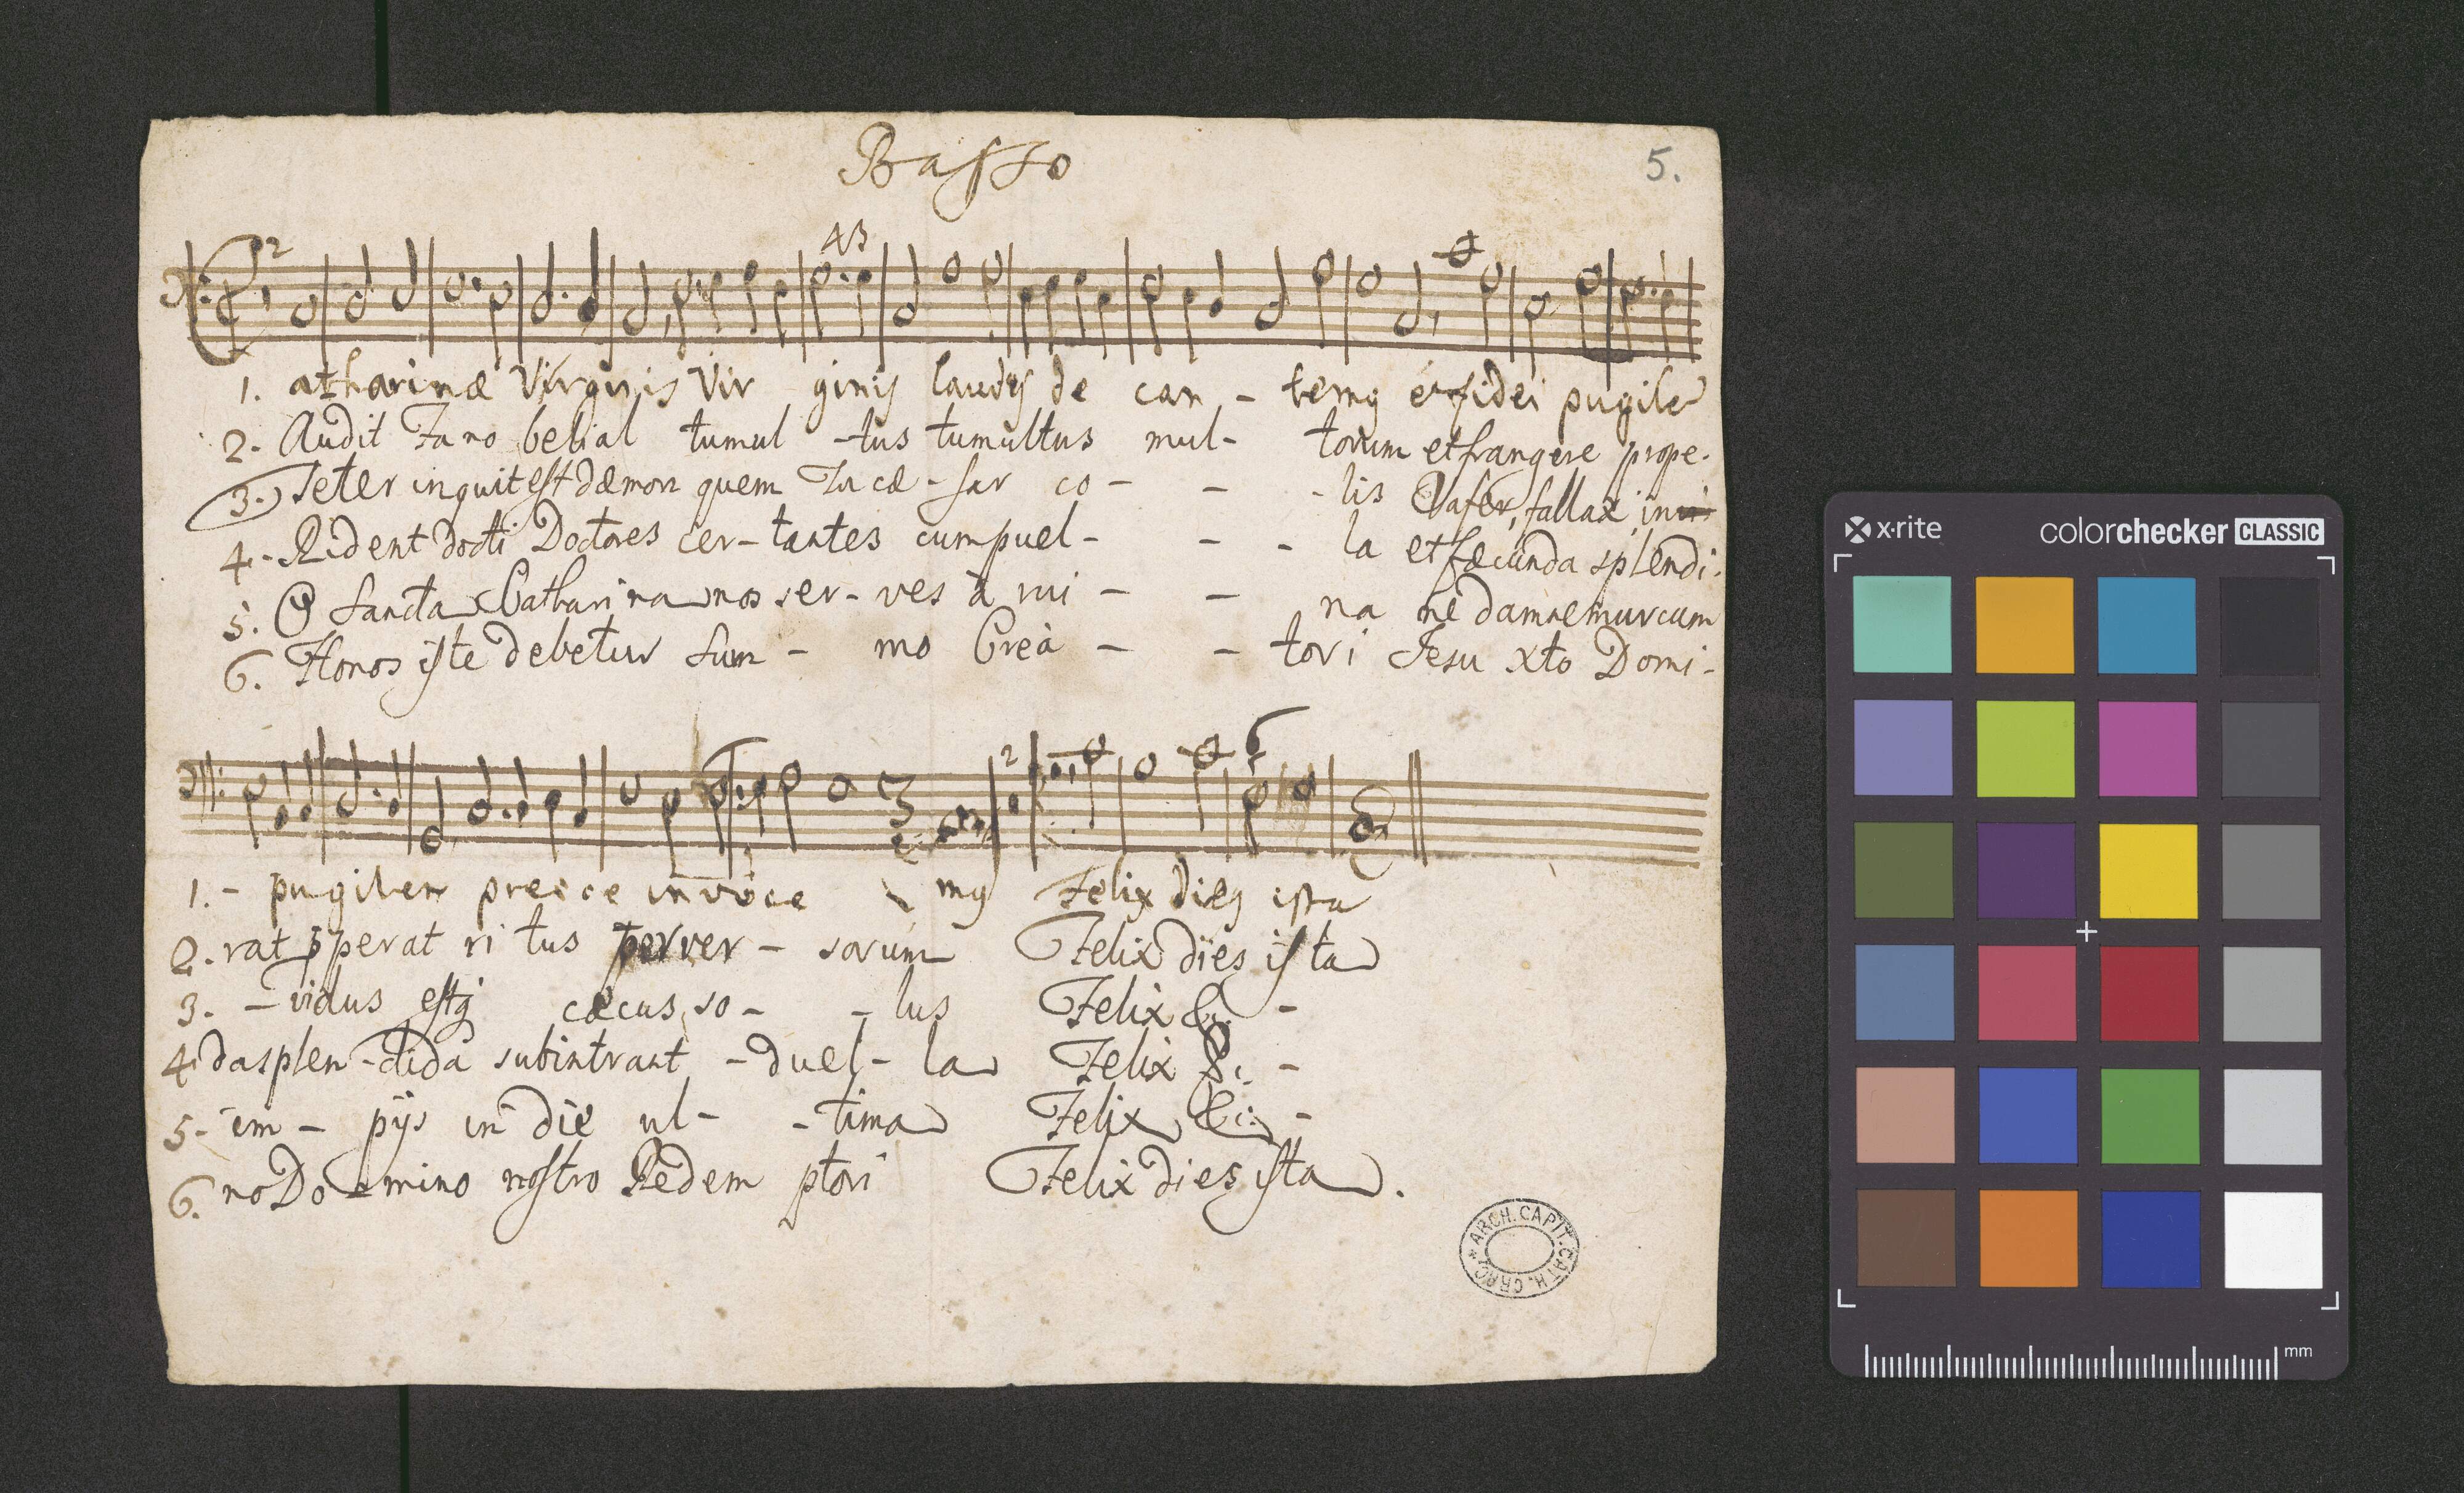 Basso
5.
43
2
1. atharinæ Virginis Vir ginis laudes de can - temq et fidei pugile
2. Audit Fano belial tumul - tus tumultus mul - torum et frangere prope.
3. Teter inquit est dæmon quem Tu cæ - sar co - - - lis Vafer, fallax, invi
4. Rident docti Doctores cer - tantes cum puel - - - la et fæcunda splendi.
5. O Sancta Catharina nos ser - ves à rui - - na ne damnemur cum
6. Honos iste debetur sum - mo Creà - - tori Jesu xto Domi -
2
1. - pugilem prece invoce mq Felix dies ista
2. rat pperat ri tus perver - sorum Felix dies ista
3. - vidus estq cæcus, so - - lus Felix &c. -
4. da splen - dida subintrant - duel - la Felix &c. -
5. im - pijs in die ul - - tima Felix &c: -
6. no Do - mino nostro Redem ptori Felix dies ista.
ARCH. CAPIT. CATH. CRAC.
x-rite colorchecker CLASSIC
mm